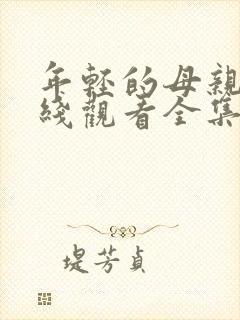 年轻的母親
綫觀看全集
堤芳貞